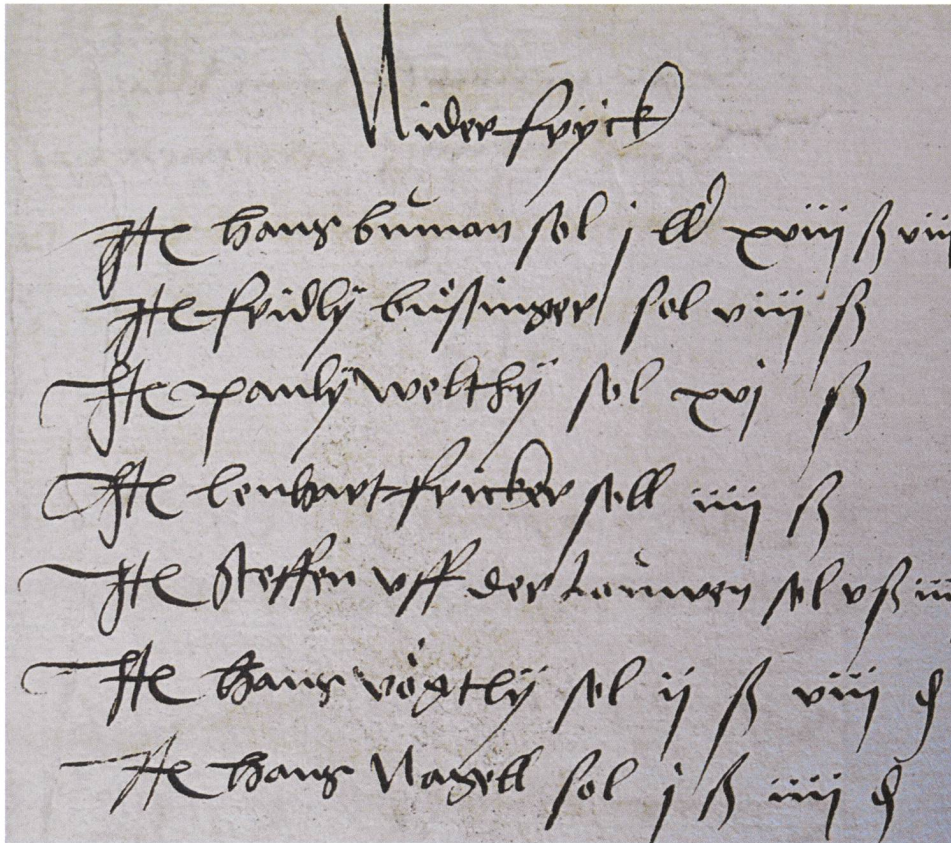 Niderfryck
Ite hans buman sol j lb xviij ß viij
Ite fridly büssinger sol viij ß
Ite pauly welthy sol xvj ß
Ite lenhart fricker soll iiij ß
Ite Steffen vff der Louwen sol v ß
Ite hans vögtly sol ij ß viij d
Ite hans Nagell sol j ß iiij d